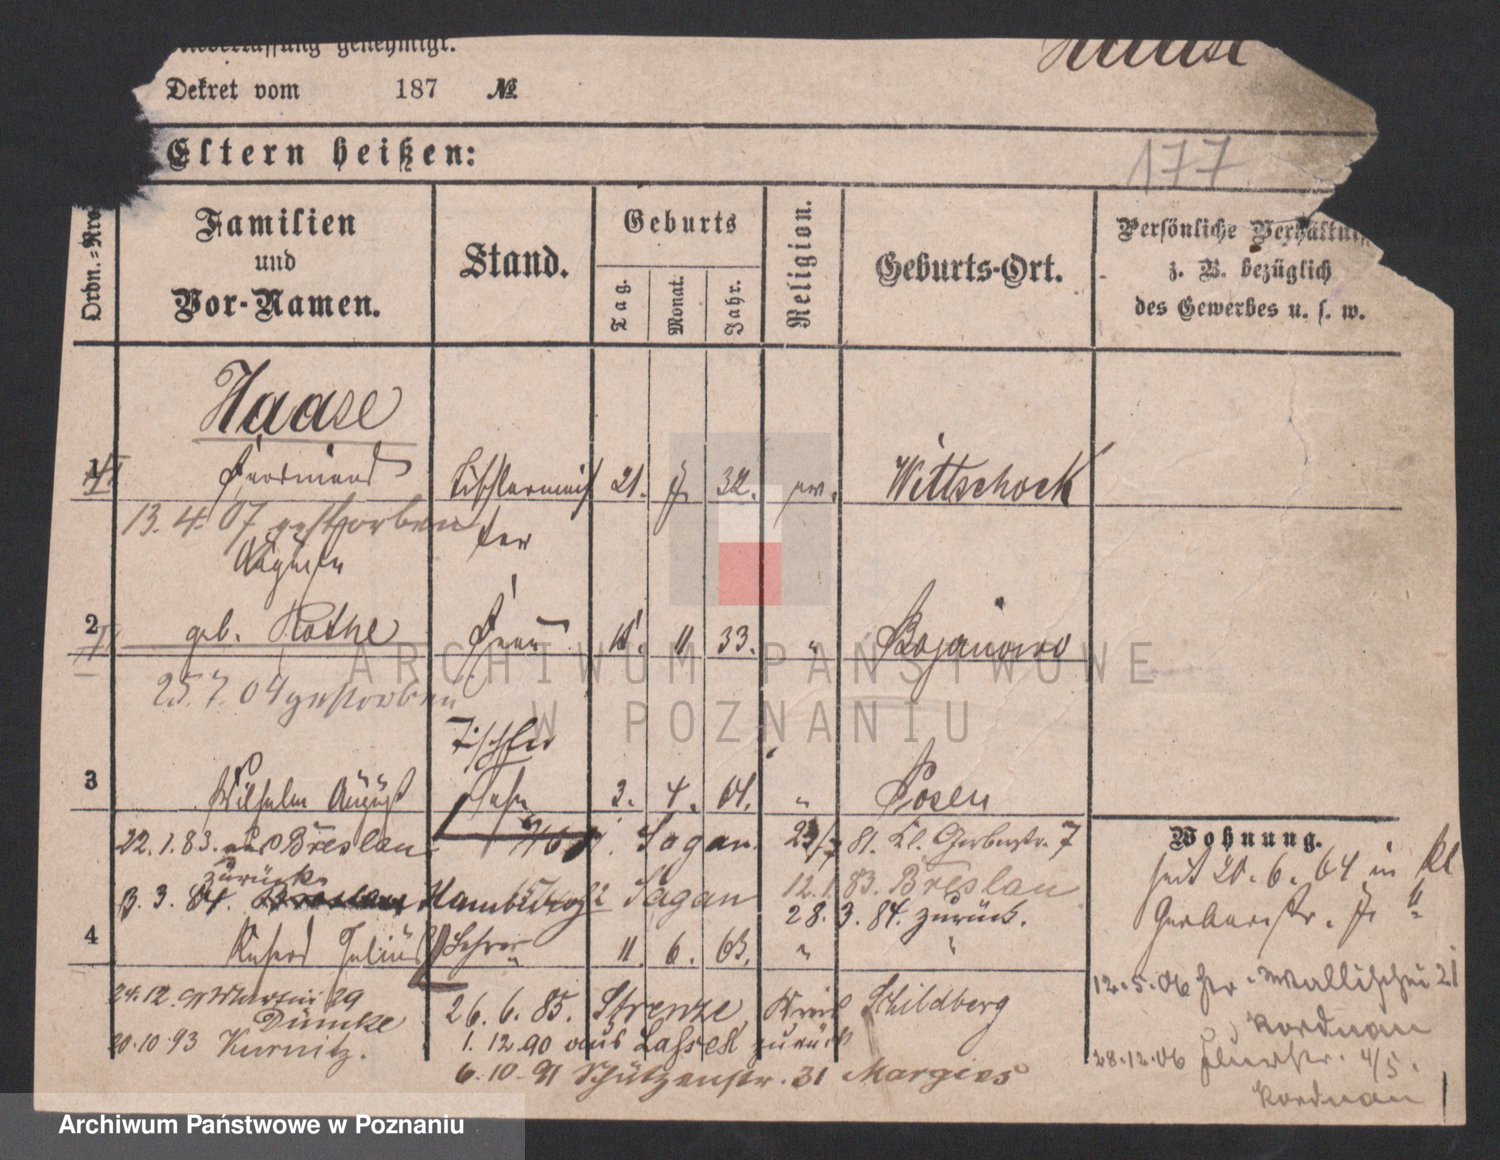 Niederlassung genehmigt.
Haase
Dekret vom 187 №
Eltern heißen:
177
Ordn.-Nro.
Familien
und
Vor-Namen.
Stand.
Geburts
Tag.
Monat.
Jahr.
Religion.
Geburts-Ort.
Persönliche Verhältnisse
z. B. bezüglich
des Gewerbes u. s. w.
Haase
1 Ferdinand Tischlermeis 21. 32. ev. Wittschock
13. 4. 07 gestorben ter
2 geb. Rothe Frau 11. 33. " Bojanowo
25. 7. 04 gestorben
Tischler
3 Wilhelm August Sohn 3. 4. 61. " Posen
Wohnung.
22. 1. 83. aus Breslau Sagan 81. Kl. Gerberstr. 7
seit 20. 6. 64 in Kl
zurück
3. 3. 84. Hamburg Sagan 12. 1. 83. Breslau
28. 3. 84. zurück.
Gerberstr. 7. "
4 Julius Lehrer 11. 6. 63. " "
24. 12. Martini 29
Dümke
26. 6. 85. Strenze, Kreis Schildberg
12. 5. 06 Wallischei 21
Kordnau
20. 10 93 Kurnitz.
1. 12. 90 aus Lassek zurück
28. 12. 06 4/5.
6. 10. 91 Schützenstr. 31 Margies
Kordnau
ARCHIWUM PAŃSTWOWE
W POZNANIU
Archiwum Państwowe w Poznaniu